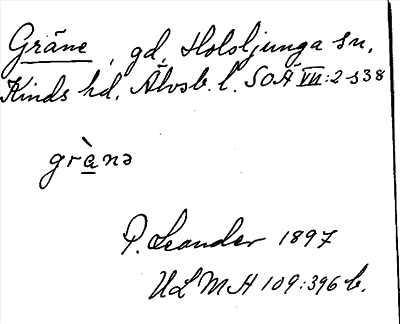 Gräne, gd, Holsljunga sn,
Kinds hd, Älvsb. l. SOÄ VII:2 s 38
grànə
P. Leander 1897
ULMA 109:396 b.